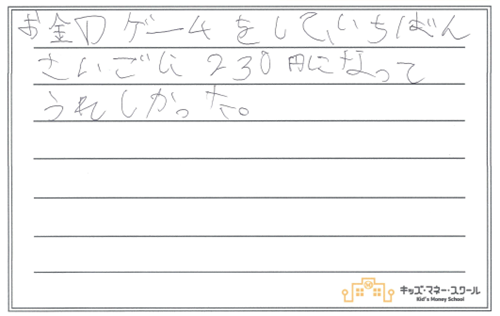 お金のゲームをして、いちばん
さいごに230円になって
うれしかった。
キッズ・マネー・スクール
Kid's Money School